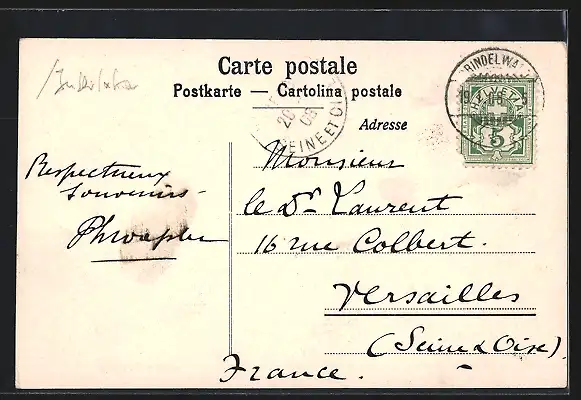 Carte postale
Postkarte — Cartolina postale
Adresse
GRINDELWALD
HELVETIA
5
20
05
SEINE ET
Respectueux
souvenirs -
Monsieur
le Dr Laurent
16 rue Colbert.
Versailles
(Seine & Oise)
France.